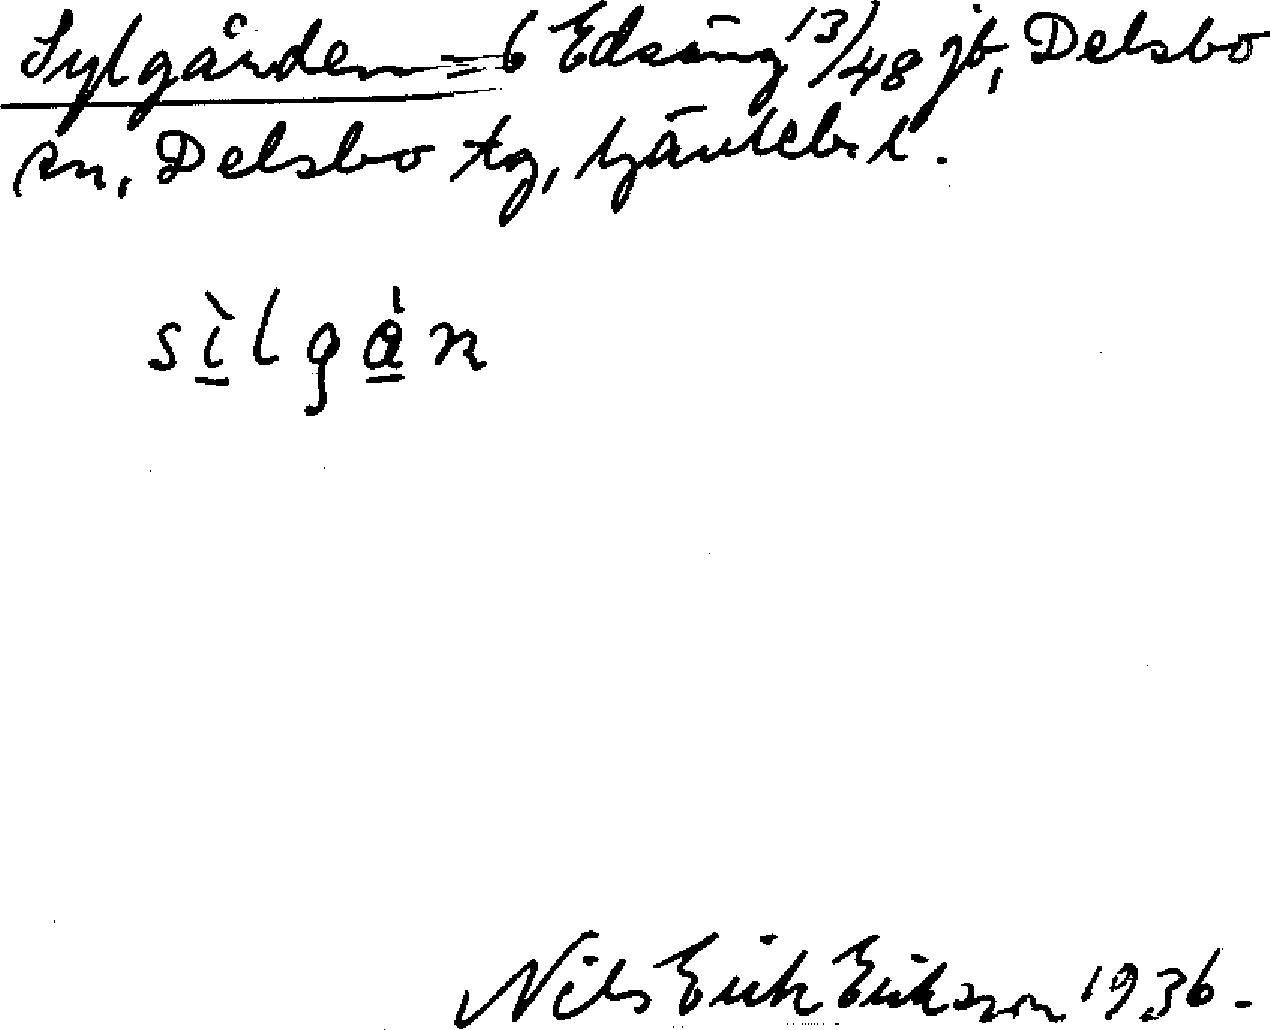 Sylgården = 6 Edsäng 13/48 jb, Delsbo
sn, Delsbo tg, Gävleb. l.
sìlgån
Nils Erik Erikson 1936.